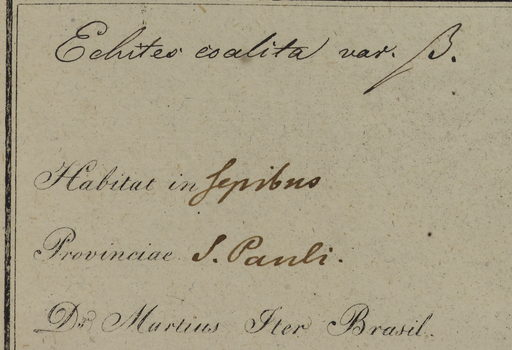 Echites coalita var. β.
Habitat in sepibus
Provinciae S. Pauli.
Dr. Martius Iter Brasil.